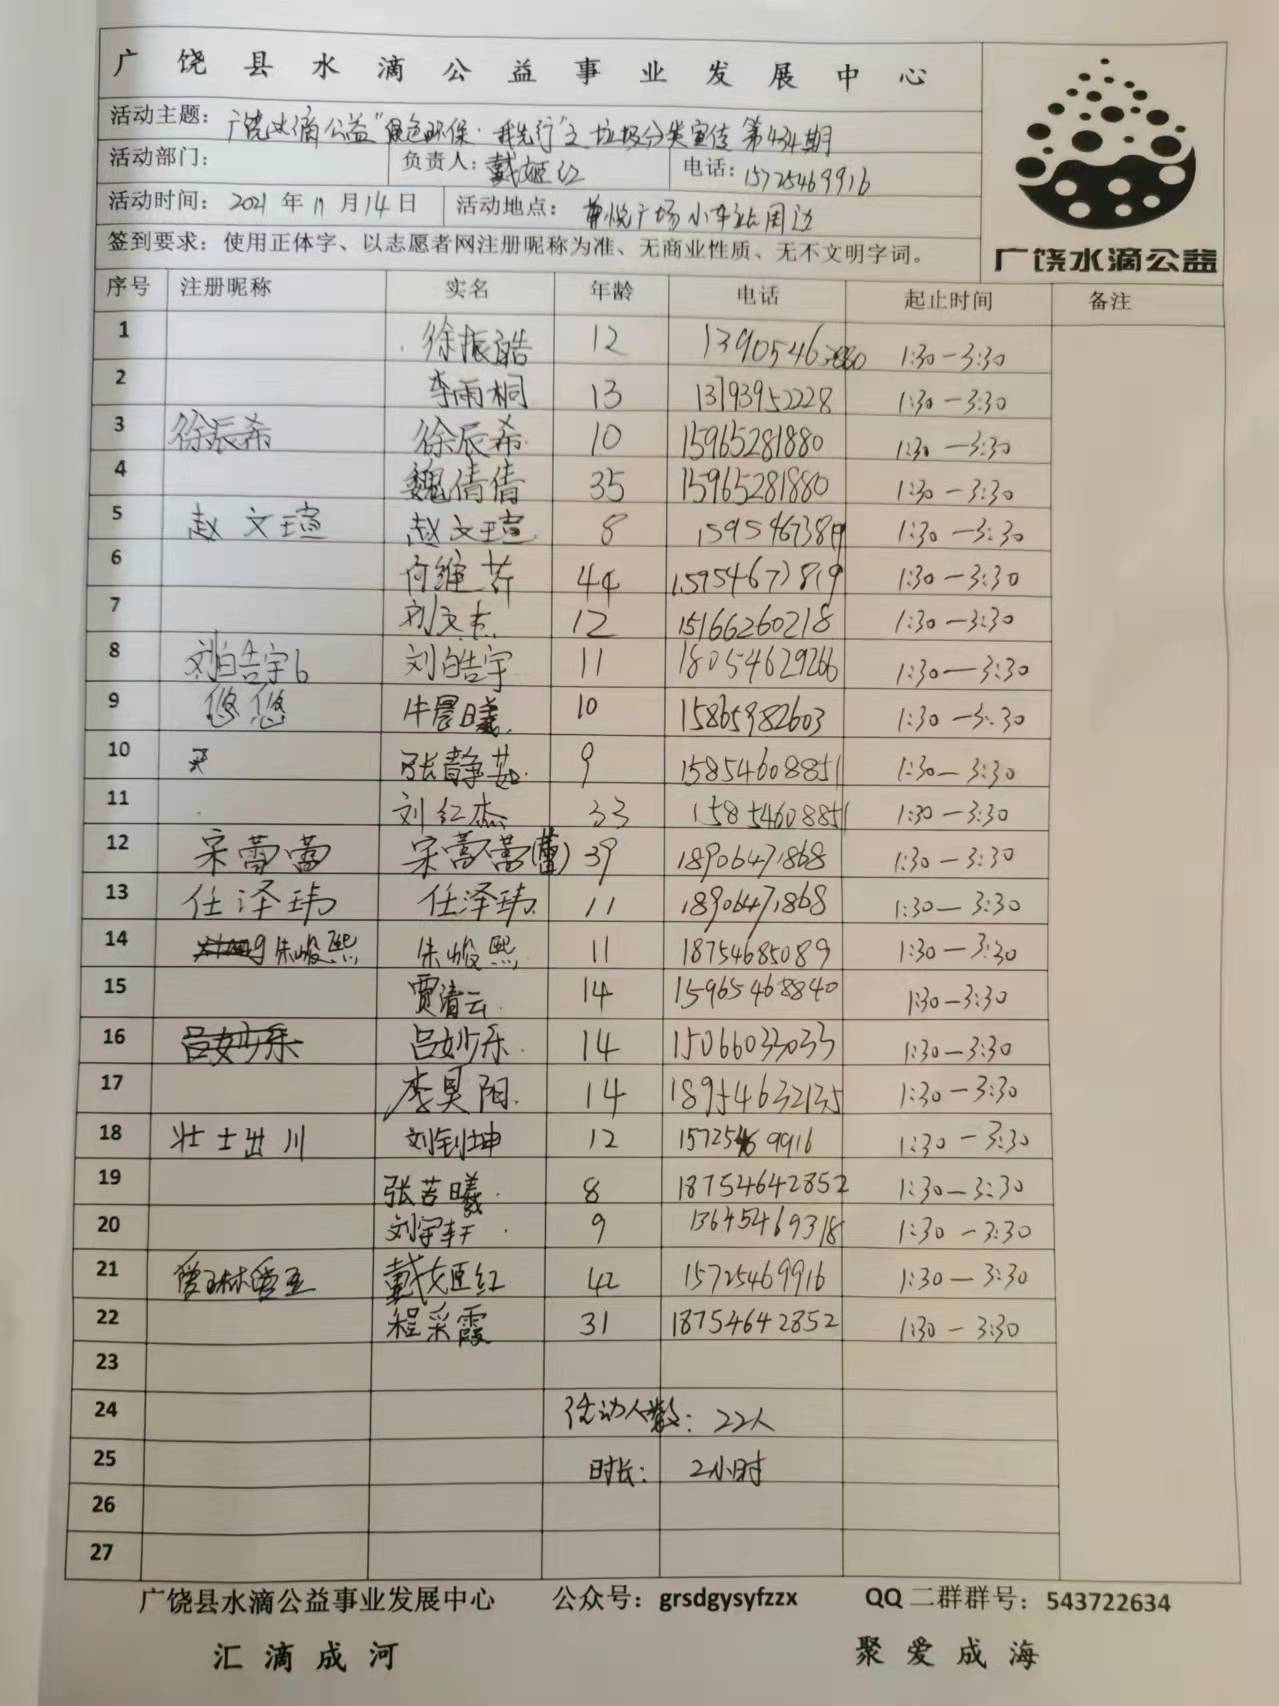 广饶县水滴公益事业发展中心
活动主题：广饶水滴公益"绿色环保·我先行"之垃圾分类宣传 第434期
活动部门： 负责人：戴姬红 电话：15725469916
活动时间：2021年11月14日 活动地点：悦广场小车站周边
签到要求：使用正体字、以志愿者网注册昵称为准、无商业性质、无不文明字词。
广饶水滴公益
序号 注册昵称 实名 年龄 电话 起止时间 备注
1 徐振皓 12 1:30-3:30
2 李雨桐 13 13793952228 1:30-3:30
3 徐辰希 徐辰希 10 15965281880 1:30-3:30
4 魏倩倩 35 15965281880 1:30-3:30
5 赵文瑄 赵文瑄 8 1:30-3:30
6 何维芹 44 15954673819 1:30-3:30
7 刘文杰 12 15166260218 1:30-3:30
8 刘皓宇6 刘皓宇 11 18054629266 1:30-3:30
9 悠悠 牛晨曦 10 15865982603 1:30-3:30
10 张静茹 9 15854608851 1:30-3:30
11 刘红杰 33 15854608851 1:30-3:30
12 宋蕾蕾 宋蕾蕾(蕾) 39 18906471868 1:30-3:30
13 任泽玮 任泽玮 11 18906471868 1:30-3:30
14 朱峻熙 朱峻熙 11 18754685089 1:30-3:30
15 贾清云 14 15965468840 1:30-3:30
16 吕妙乐 吕妙乐 14 15066033033 1:30-3:30
17 李昊阳 14 18954632135 1:30-3:30
18 壮士出川 刘钊坤 12 15725469916 1:30-3:30
19 张若曦 8 18754642852 1:30-3:30
20 刘宇轩 9 13645469318 1:30-3:30
21 戴姬红 42 15725469916 1:30-3:30
22 程采霞 31 18754642852 1:30-3:30
23
24 活动人数：22人
25 时长：2小时
26
27
广饶县水滴公益事业发展中心 公众号：grsdgysyfzzx QQ二群群号：543722634
汇滴成河 聚爱成海